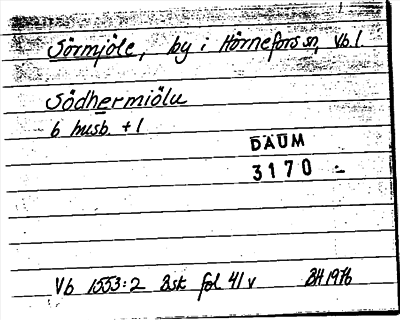 Sörmjöle, by i Hörnefors sn, Vb. l
Södhermiölu
6 husb. + 1
DAUM
3170 :-
Vb 1553:2 Bsk fol 41 v BH 1976